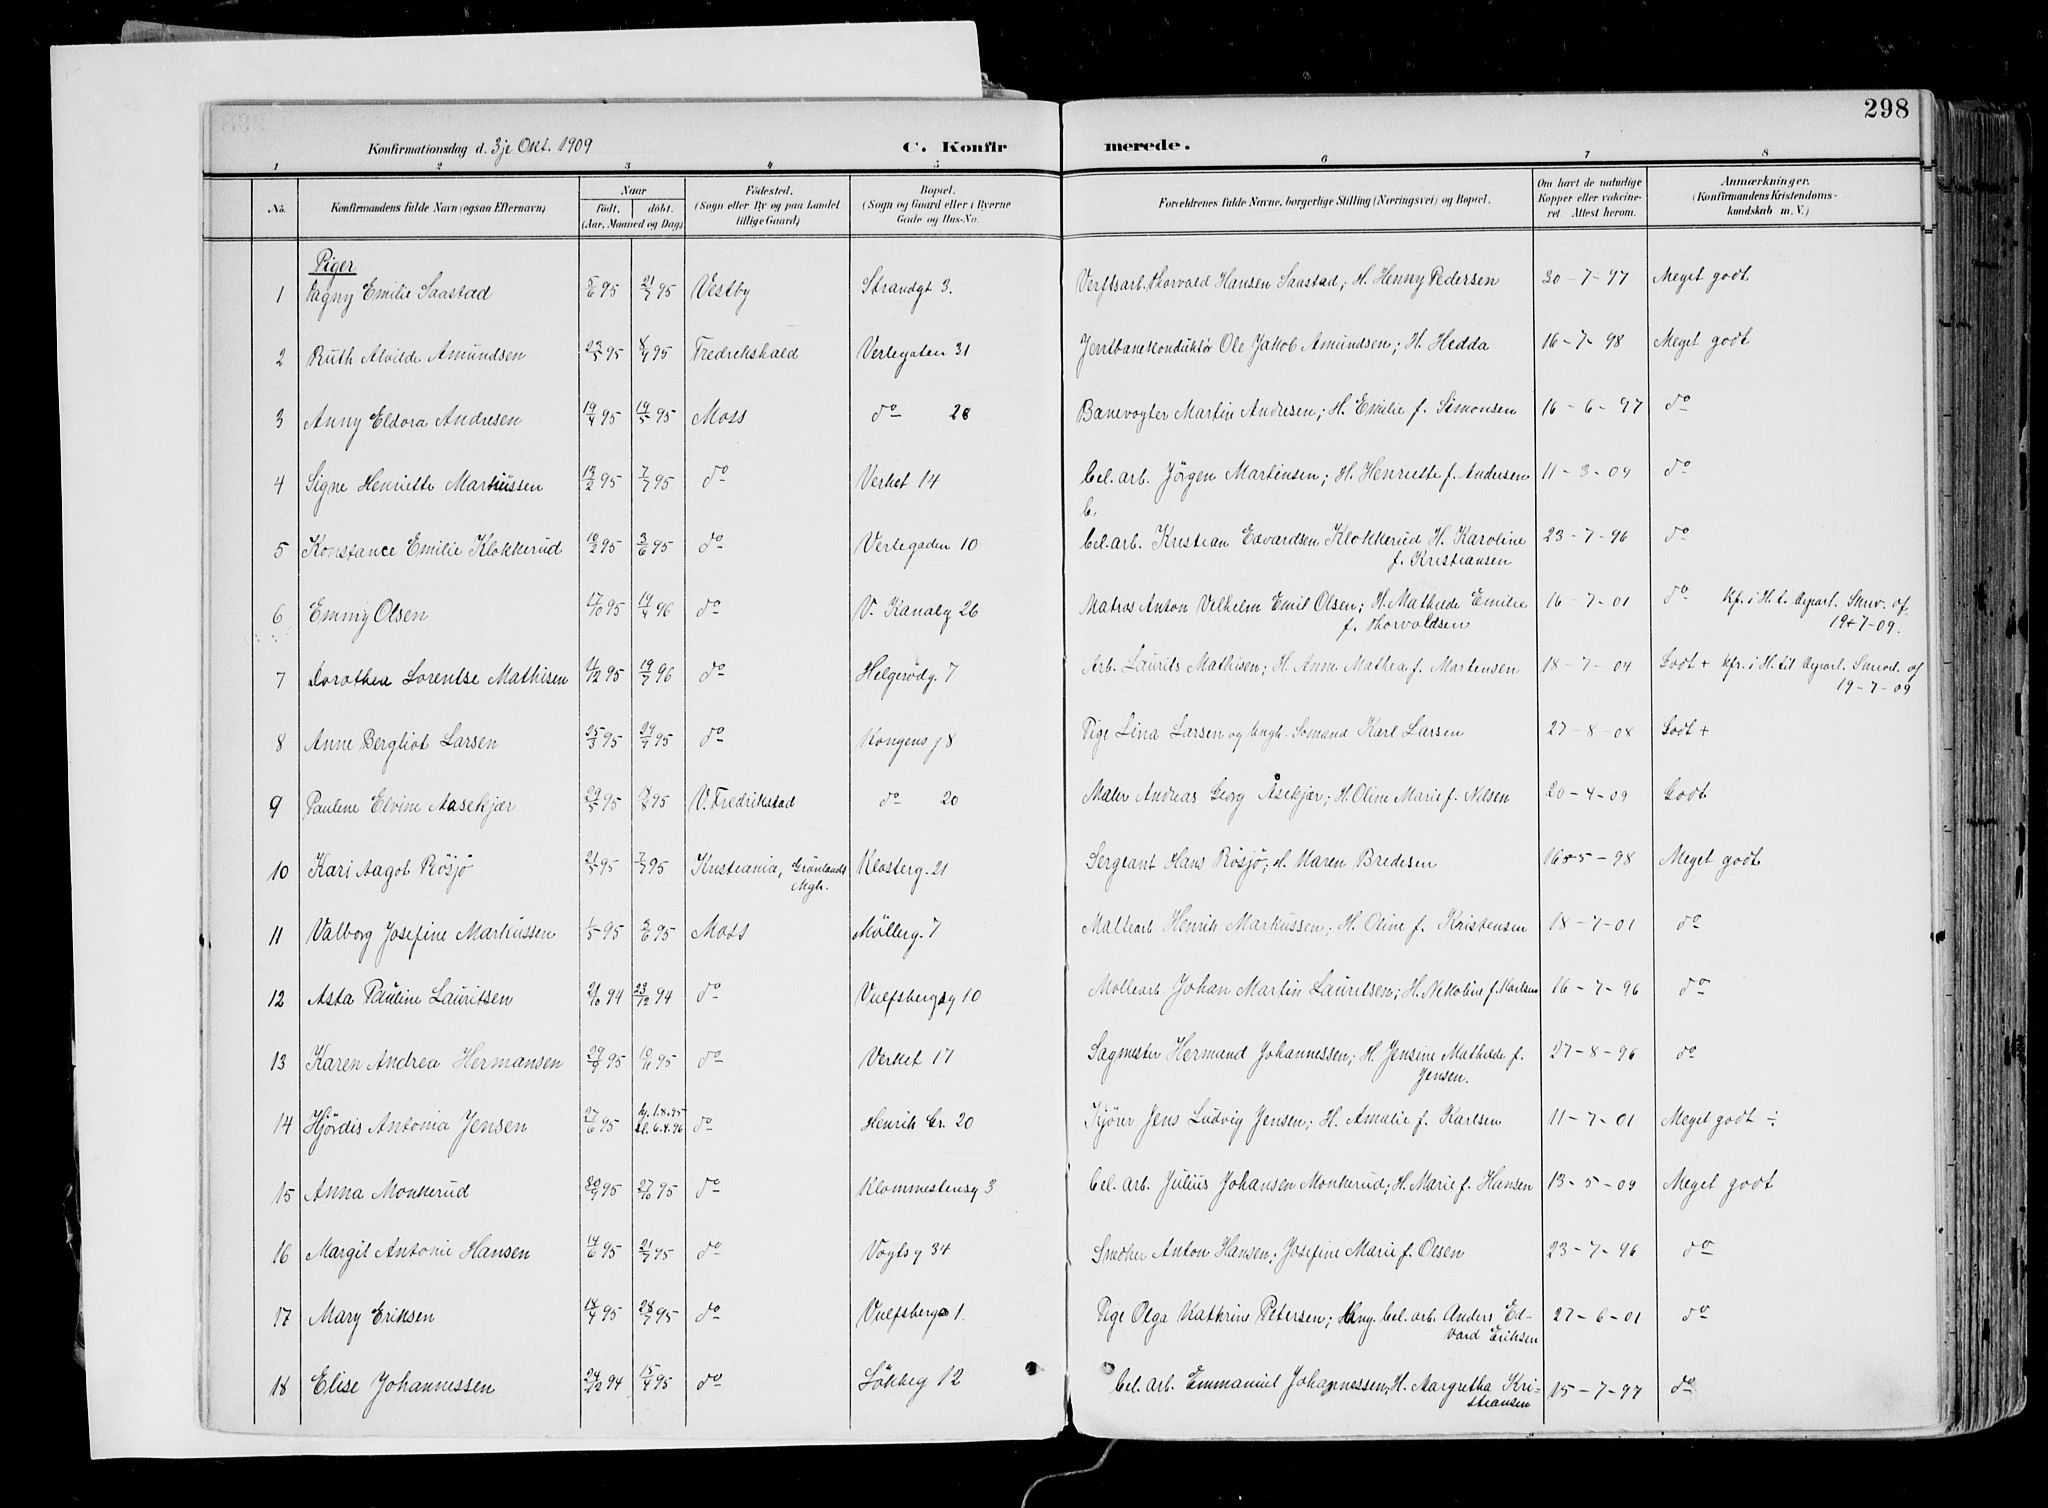 298
Konfirmationsdag d. 3je Okt. 1909 C. Konfirmerede.
1 2 3 4 5 6 7 8
No. Konfirmandens fulde Navn (ogsaa Efternavn) Naar født. døbt. (Aar, Maaned og Dag) Födested. (Sogn eller By og paa Landet tillige Gaard) Bopæl. (Sogn og Gaard eller i Byerne Gade og Hus-No. Forældrenes fulde Navne, borgerlige Stilling (Næringsvei) og Bopæl. Om havt de naturlige Kopper eller vakcineret. Attest herom. Anmærkninger. (Konfirmandens Kristendomskundskab m. V.)
Piger
1 Dagny Emilie Saastad 5/6 95 21/7 95 Vestby Strandgt 3. Verftsarb. Thorvald Hansen Saastad; H. Henny Pedersen 30-7-97 Meget godt
2 Ruth Alvilde Amundsen 23/5 95 Fredrikshald Verlegaten 31 Jernbanekonduktør Ole Jakob Amundsen; H. Hedda 16-7-98 Meget godt
3 Anny Eldora Andresen 19/4 95 19/5 95 Moss do 28 Banevogter Martin Andresen; H. Emilie f. Simonsen 16-6-97 do
4 Signe Henriette Martinssen 13/2 95 7/7 95 do Verket 14 Cel. arb. Jörgen Martinsen; H. Henriette f. Andersen 11-3-09 do
5 Konstance Emilie Klokkerud 10/2 95 3/6 95 do Verlegaden 10 Cel. arb. Kristian Edvardsen Klokkerud H. Karoline f. Kristiansen 23-7-96 do
6 Emmy Olsen 17/10 95 19/4 96 do V. Kanalg 26 Matros Anton Vilhelm Emil Olsen; H. Mathilde Emilie f. Thorvaldsen 16-7-01 do Kfr. i H. t. Depart. Skriv. af 19-7-09.
7 Dorothea Lorentse Mathisen 95 19/7 96 do Helgerödg. 7 Arb. Laurits Mathisen; H. Anne Mathea f. Martensen 18-7-04 Godt + Kfr. i H. til Depart. Skrivel. af 19-7-09
8 Anne Bergliot Larsen 25/3 95 95 do Kongens g 8 Pige Lina Larsen og Ungk. Sömand Karl Larsen 27-8-08 Godt +
9 Pauline Elvine Aasekjær 29/5 95 95 V. Fredrikstad do 20 Maler Andreas Georg Åsekjær; H. Oline Marie f. Nilsen 20-4-09 Godt
10 Kari Aagot Rösjö 21/5 95 7/7 95 Kristiania, Grönlands Mgh. Klosterg. 21 Sergeant Hans Rösjö; H. Maren Bredesen 16-5-98 Meget godt
11 Valborg Josefine Markussen 1/5 95 95 Moss Möllerg. 7 Maltearb Henrik Markussen; H. Oline f. Kristensen 18-7-01 do
12 Asta Pauline Lauritsen 21/10 94 23/12 94 do Vulfsbergsg 10 Möllearb. Johan Martin Lauritsen; H. Nikoline f. Karlsen 16-7-96 do
13 Karen Andrea Hermansen 29/9 95 10/11 95 do Verket 17 Sagmester Hermand Johannessen; H. Jensine Mathilde f. Jensen. 27-8-96 do
14 Hjördis Antonia Jensen 27/6 95 hj. 1.8.95 kl. 6.4.96 do Henrik Gr. 20 Kjörer Jens Ludvig Jensen; H. Amalie f. Karlsen 11-7-01 Meget godt ÷
15 Anna Monkerud 95 27/10 95 do Klommestensg 3 Cel. arb. Julius Johansen Monkerud; H. Marie f. Hansen 13-5-09 Meget godt
16 Margit Antonie Hansen 14/6 95 21/7 95 do Vogtsg 34 Snedker Anton Hansen, Josefine Marie f. Olsen 23-7-96 do
17 Mary Eriksen 14/4 95 28/7 95 do Vulfsbergs 1. Pige Olga Kathrine Petersen; Ung. cel. arb. Anders Edvard Eriksen 27-6-01 do
18 Elise Johannessen 24/12 94 15/4 95 do Lökkeg 12 Cel. arb. Emmanuel Johannessen; H. Margretha Kristiansen 15-7-97 do